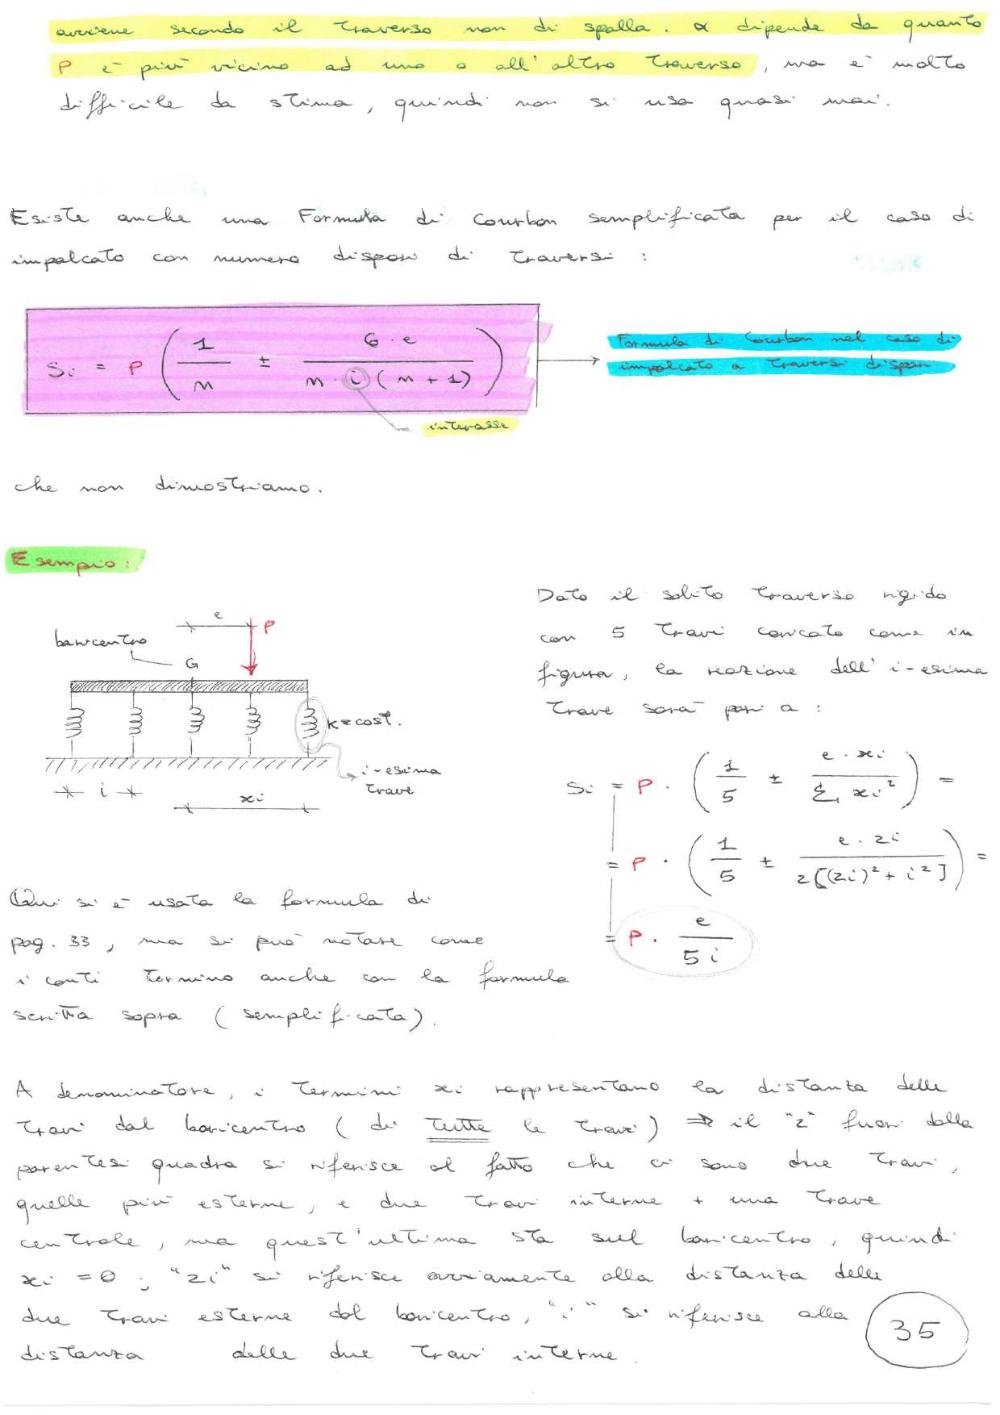 avviene secondo il traverso non di spalla. α dipende da quanto
P è più vicino ad uno o all'altro traverso, ma è molto
difficile da stima, quindi non si usa quasi mai.
Esiste anche una Formula di Courbon semplificata per il caso di
impalcato con numero dispari di traversi :
Si = P ( 1 / n ± 6 · e / n · i ( n + 1 ) )
Formula di Courbon nel caso di
impalcato a traversi dispari
interasse
che non dimostriamo.
Esempio :
e
P
baricentro
G
K = cost.
i-esima
trave
i
xi
Dato il solito traverso rigido
con 5 travi caricato come in
figura, la reazione dell' i-esima
trave sarà pari a :
Si = P · ( 1 / 5 ± e · xi / Σi xi² ) =
= P · ( 1 / 5 ± e · 2i / 2[(2i)² + i²] ) =
= P · e / 5i
Qui si è usata la formula di
pag. 33, ma si può notare come
i conti tornino anche con la formula
scritta sopra ( semplificata ).
A denominatore, i termini xi rappresentano la distanza delle
travi dal baricentro ( di tutte le travi ) ⇒ il "2" fuori dalla
parentesi quadra si riferisce al fatto che ci sono due travi,
quelle più esterne, e due travi interne + una trave
centrale, ma quest'ultima sta sul baricentro, quindi
xi = 0 ; "2i" si riferisce ovviamente alla distanza delle
due travi esterne dal baricentro, "i" si riferisce alla
distanza delle due travi interne.
35